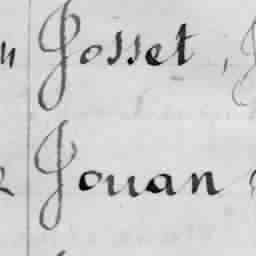 Josset,
Jouan